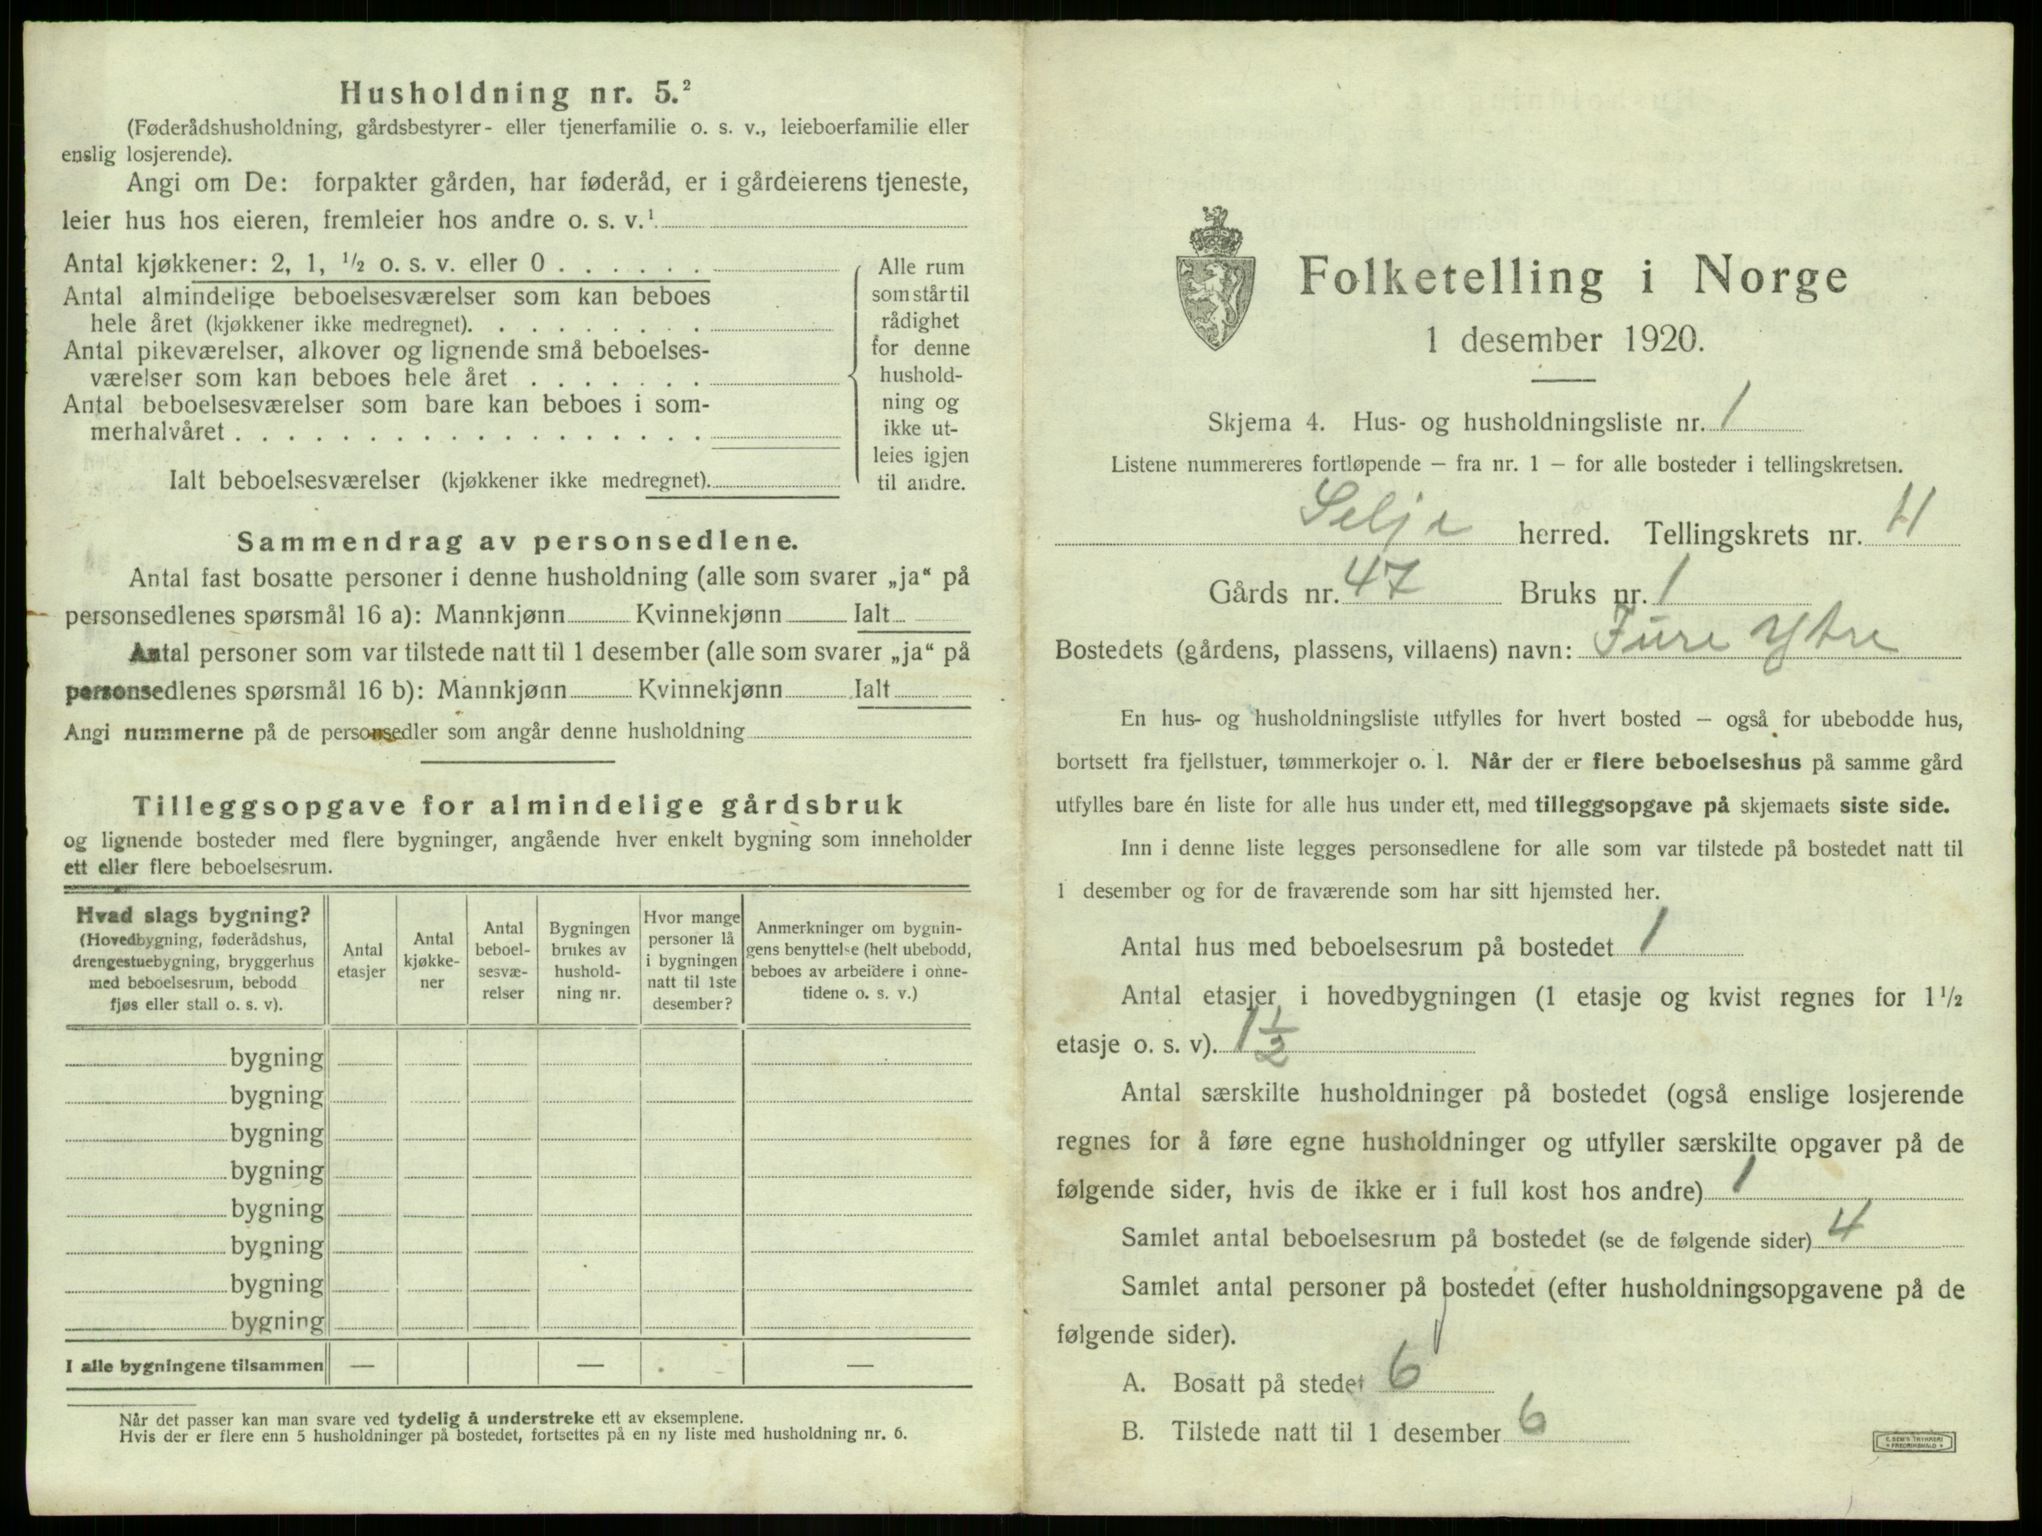 Husholdning nr. 5.²
(Føderådshusholdning, gårdsbestyrer- eller tjenerfamilie o. s. v., leieboerfamilie eller
enslig losjerende).
Angi om De: forpakter gården, har føderåd, er i gårdeierens tjeneste,
leier hus hos eieren, fremleier hos andre o. s. v.¹
Antal kjøkkener: 2, 1, ½ o. s. v. eller 0 . . . . . .
Antal almindelige beboelsesværelser som kan beboes
hele året (kjøkkener ikke medregnet). . . . . . . . .
Antal pikeværelser, alkover og lignende små beboelses-
værelser som kan beboes hele året . . . . . . .
Antal beboelsesværelser som bare kan beboes i som-
merhalvåret . . . . . . . . . . . . . . . . . .
Ialt beboelsesværelser (kjøkkener ikke medregnet).
Alle rum
som står til
rådighet
for denne
hushold-
ning og
ikke ut-
leies igjen
til andre.
Sammendrag av personsedlene.
Antal fast bosatte personer i denne husholdning (alle som svarer „ja“ på
personsedlenes spørsmål 16 a): Mannkjønn Kvinnekjønn Ialt
Antal personer som var tilstede natt til 1 desember (alle som svarer „ja“ på
personsedlenes spørsmål 16 b): Mannkjønn Kvinnekjønn Ialt
Angi nummerne på de personsedler som angår denne husholdning
Tilleggsopgave for almindelige gårdsbruk
og lignende bosteder med flere bygninger, angående hver enkelt bygning som inneholder
ett eller flere beboelsesrum.
Hvad slags bygning?
(Hovedbygning, føderådshus,
drengestuebygning, bryggerhus
med beboelsesrum, bebodd
fjøs eller stall o. s. v).
Antal
etasjer
Antal
kjøkke-
ner
Antal
beboel-
sesvæ-
relser
Bygningen
brukes av
hushold-
ning nr.
Hvor mange
personer lå
i bygningen
natt til 1ste
desember?
Anmerkninger om bygnin-
gens benyttelse (helt ubebodd,
beboes av arbeidere i onne-
tidene o. s. v.)
bygning
bygning
bygning
bygning
bygning
bygning
bygning
bygning
I alle bygningene tilsammen — — —
Når det passer kan man svare ved tydelig å understreke ett av eksemplene.
Hvis der er flere enn 5 husholdninger på bostedet, fortsettes på en ny liste med husholdning nr. 6.
Folketelling i Norge
1 desember 1920.
Skjema 4. Hus- og husholdningsliste nr. 1
Listene nummereres fortløpende – fra nr. 1 – for alle bosteder i tellingskretsen.
Selje herred. Tellingskrets nr. 11
Gårds nr. 47 Bruks nr. 1
Bostedets (gårdens, plassens, villaens) navn: Fure Ytre
En hus- og husholdningsliste utfylles for hvert bosted – også for ubebodde hus,
bortsett fra fjellstuer, tømmerkojer o. l. Når der er flere beboelseshus på samme gård
utfylles bare én liste for alle hus under ett, med tilleggsopgave på skjemaets siste side.
Inn i denne liste legges personsedlene for alle som var tilstede på bostedet natt til
1 desember og for de fraværende som har sitt hjemsted her.
Antal hus med beboelsesrum på bostedet 1
Antal etasjer i hovedbygningen (1 etasje og kvist regnes for 1½
etasje o. s. v). 1½
Antal særskilte husholdninger på bostedet (også enslige losjerende
regnes for å føre egne husholdninger og utfyller særskilte opgaver på de
følgende sider, hvis de ikke er i full kost hos andre) 1
Samlet antal beboelsesrum på bostedet (se de følgende sider) 4
Samlet antal personer på bostedet (efter husholdningsopgavene på de
følgende sider).
A. Bosatt på stedet 6
B. Tilstede natt til 1 desember 6